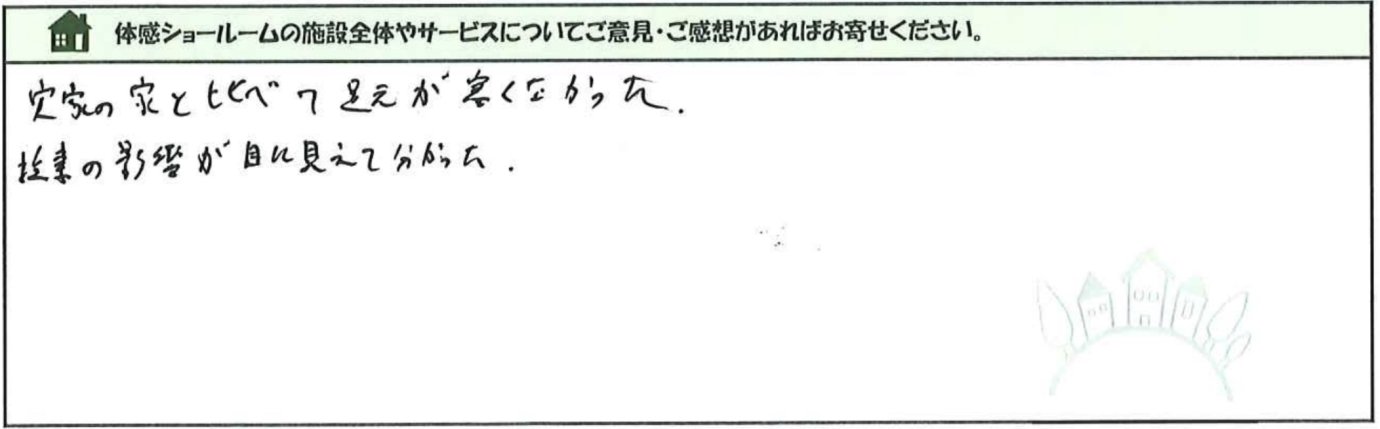 体感ショールームの施設全体やサービスについてご意見・ご感想があればお寄せください。
実家の家と比べて足元が寒くなかった.
の影響が目に見えて分かった.